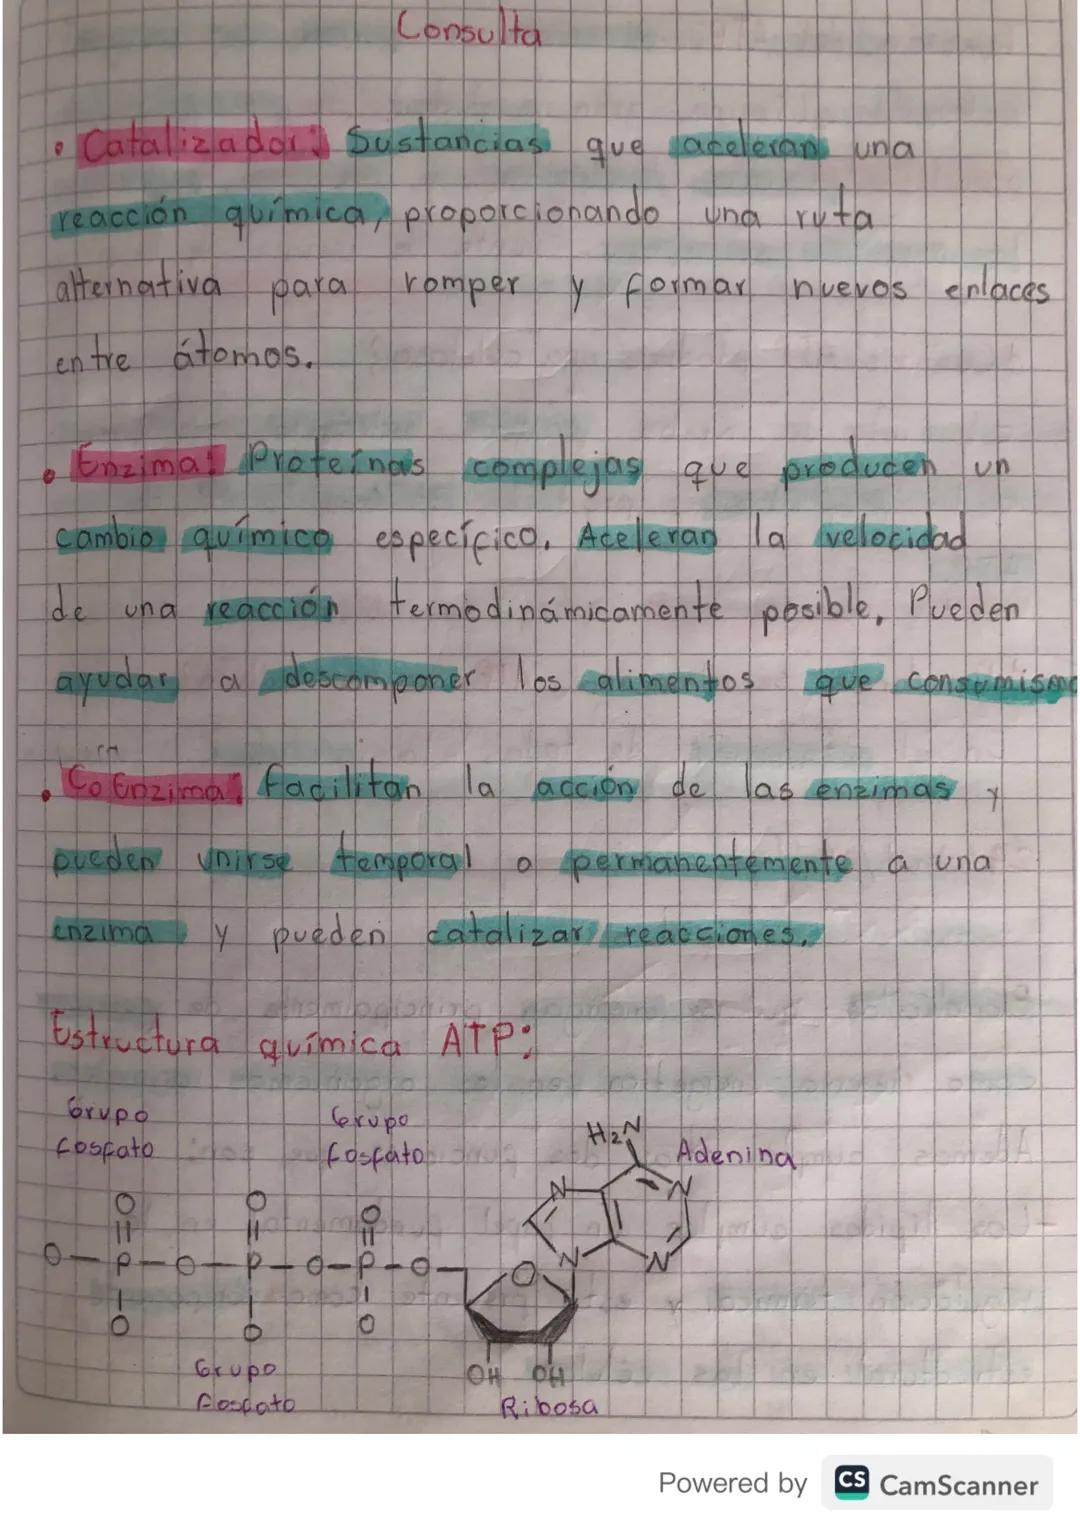 Consulta
• Catalizador: Sustancias que aceleran una
reacción química, proporcionando una ruta
alternativa para romper y formar nuevos enlaces
entre átomos.
• Enzima: Proteínas complejas que producen un
cambio químico específico. Aceleran la velocidad
de una reacción termodinámicamente posible. Pueden
ayudar a descomponer los alimentos que consumismo
• CoEnzima: facilitan la acción de las enzimas y
pueden unirse temporal o permanentemente a una
enzima y pueden catalizar reacciones.
Estructura química ATP:
Grupo
fosfato
Grupo
fosfato
H2N
Adenina
N
N
O
O
O
O-P-O-P-O-P-O
N
N
O
O
O
O
OH OH
Grupo
fosfato
Ribosa
Powered by CS CamScanner